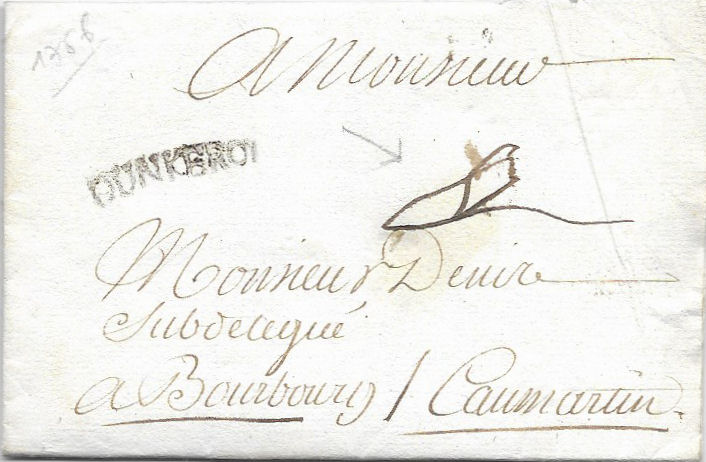 1768
A Monsieur
DUNKERQ
Monsieur Denise
Subdelegué
a Bourbourg / Caumartin.